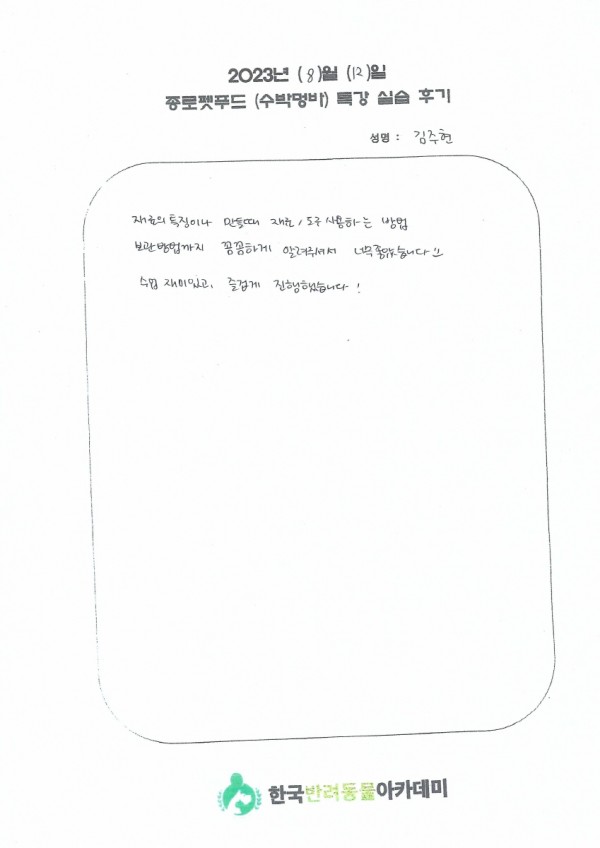 2023년 (8)월 (12)일
종로펫푸드 (수박멍바) 특강 실습 후기
성명 : 김주현
재료의 특징이나 만들때 재료/도구 사용하는 방법
보관방법까지 꼼꼼하게 알려주셔서 너무좋았습니다 :)
수업 재미있고, 즐겁게 진행했습니다!
한국반려동물아카데미